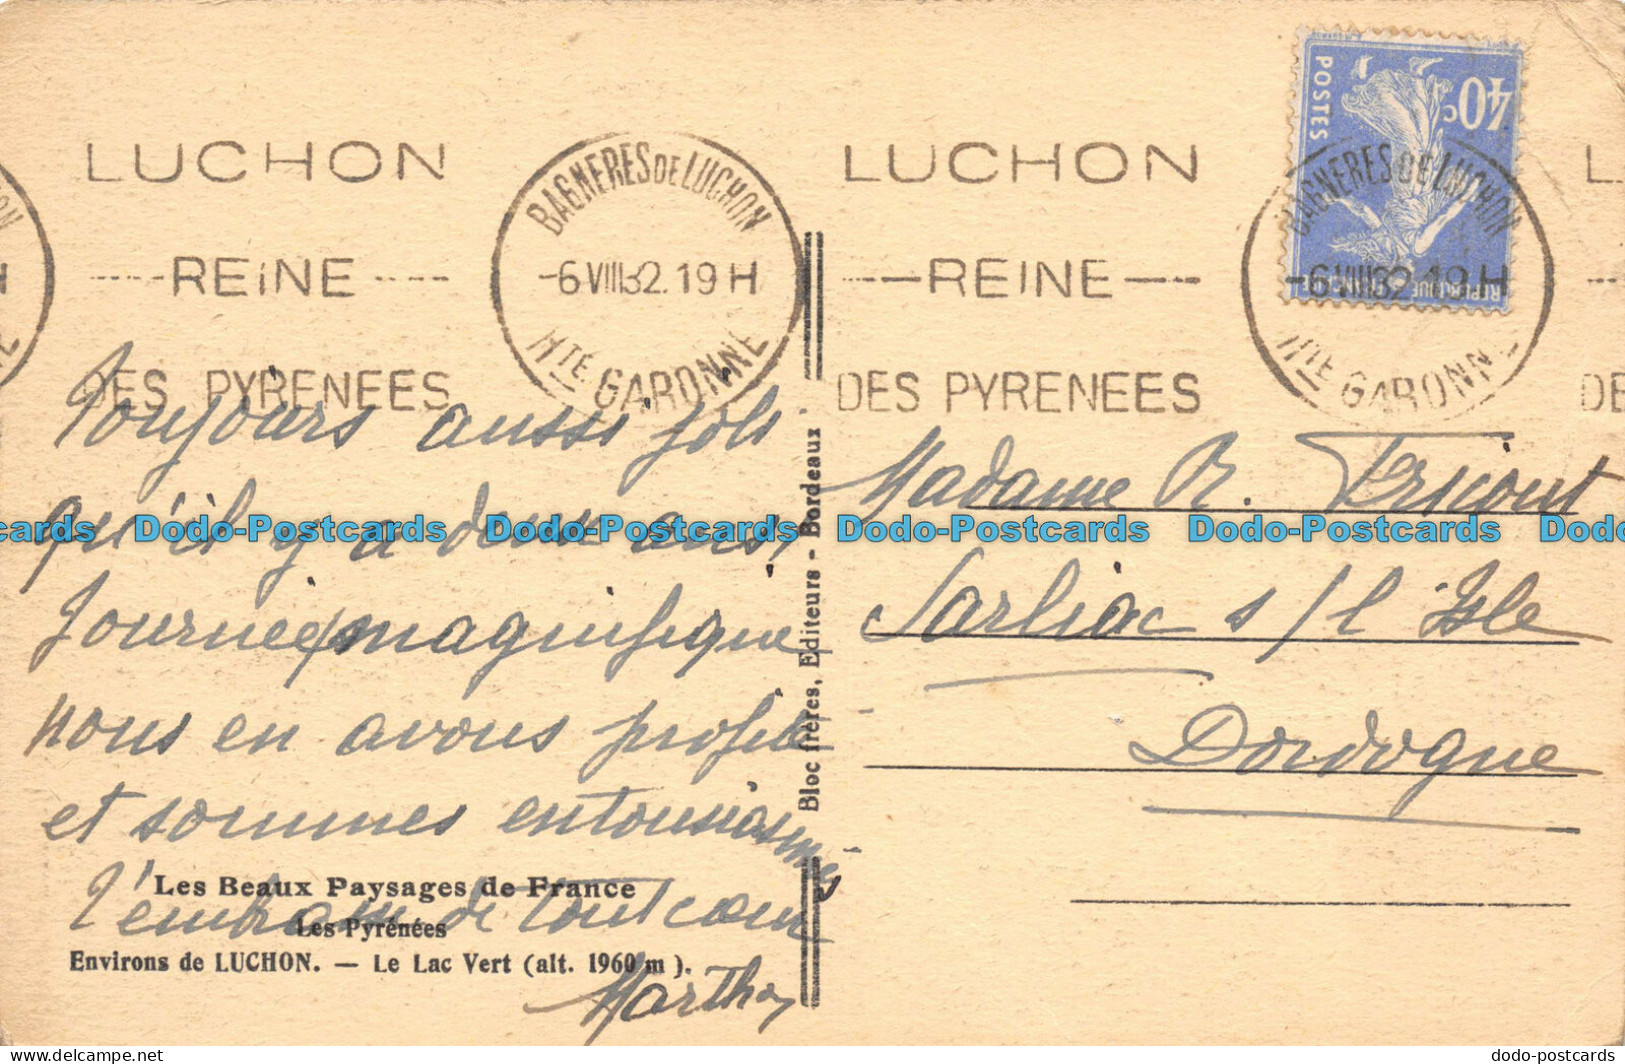 LUCHON
REINE
DES PYRENEES
BAGNERES DE LUCHON
-6 VIII 32. 19 H
HTE GARONNE
LUCHON
REINE
DES PYRENEES
BAGNERES DE LUCHON
-6 VIII 32 19 H
HTE GARONN
40c
POSTES
Toujours aussi joli
qu'il y a deux ans,
Journée magnifique
nous en avons profité
et sommes entousiasmés
J'embrasse de tout cœur
Marthe
Les Beaux Paysages de France
Les Pyrénées
Environs de LUCHON. — Le Lac Vert (alt. 1960 m).
Bloc frères, Editeurs - Bordeaux
Madame R.
Sarliac s/l'Isle
Dordogne
Dodo-Postcards Dodo-Postcards Dodo-Postcards Dodo-Postcards
dodo-postcards.com
dodo-postcards